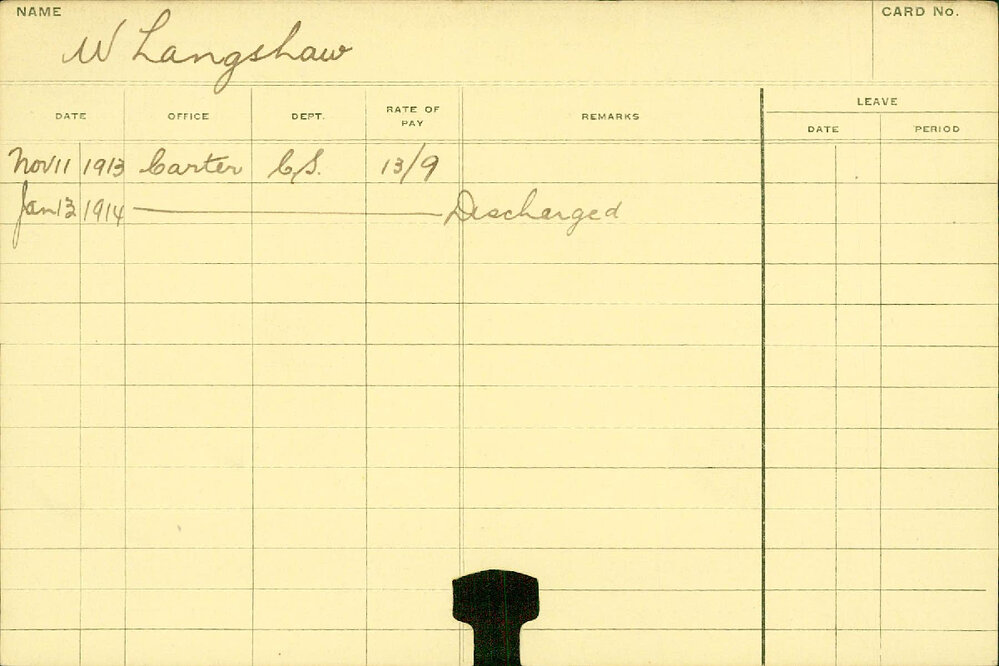 NAME CARD No.
W Langshaw
LEAVE
DATE OFFICE DEPT. RATE OF PAY REMARKS DATE PERIOD
Nov 11 1913 Carter C.S. 13/9
Jan 13 1914 Discharged